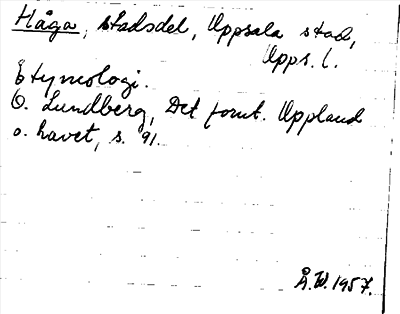 Håga, stadsdel, Uppsala stad,
Upps. l.
Etymologi.
O. Lundberg, Det fornt. Uppland
o. havet, s. 91.
Å.W. 1957.